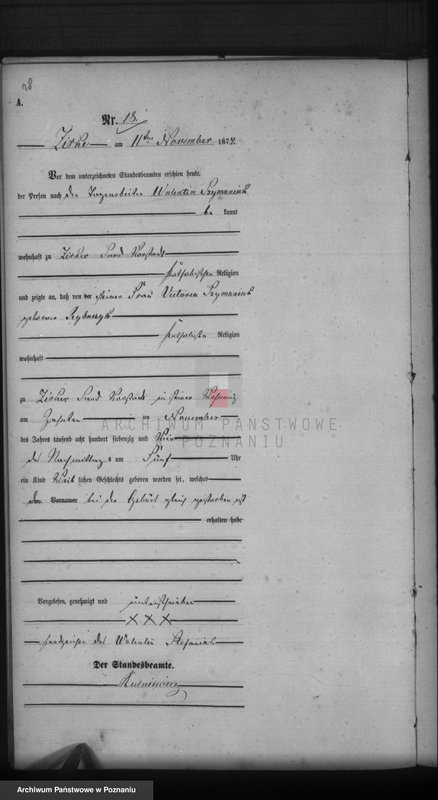 A.
Nr. 18.
Zirke am 11ten November 1874.
Vor dem unterzeichneten Standesbeamten erschien heute,
der Person nach der Tagearbeiter Walentin
be kannt
wohnhaft zu Zirker
katholischer Religion
und zeigte an, daß von der seiner Frau Victoria
geborene
katholischer Religion
wohnhaft
zu Zirker in seiner Wohnung
am Zehnten ten November
des Jahres tausend acht hundert siebenzig und Vier
des Nachmittags um Fünf Uhr
ein Kind Weib lichen Geschlechts geboren worden sei, welches
den Vornamen bei der Geburt gleich gestorben ist
erhalten habe
ARCHIWUM PAŃSTWOWE
POZNANIU
Vorgelesen, genehmigt und unterschrieben
XXX
Handzeichen des
Der Standesbeamte.
Archiwum Państwowe w Poznaniu